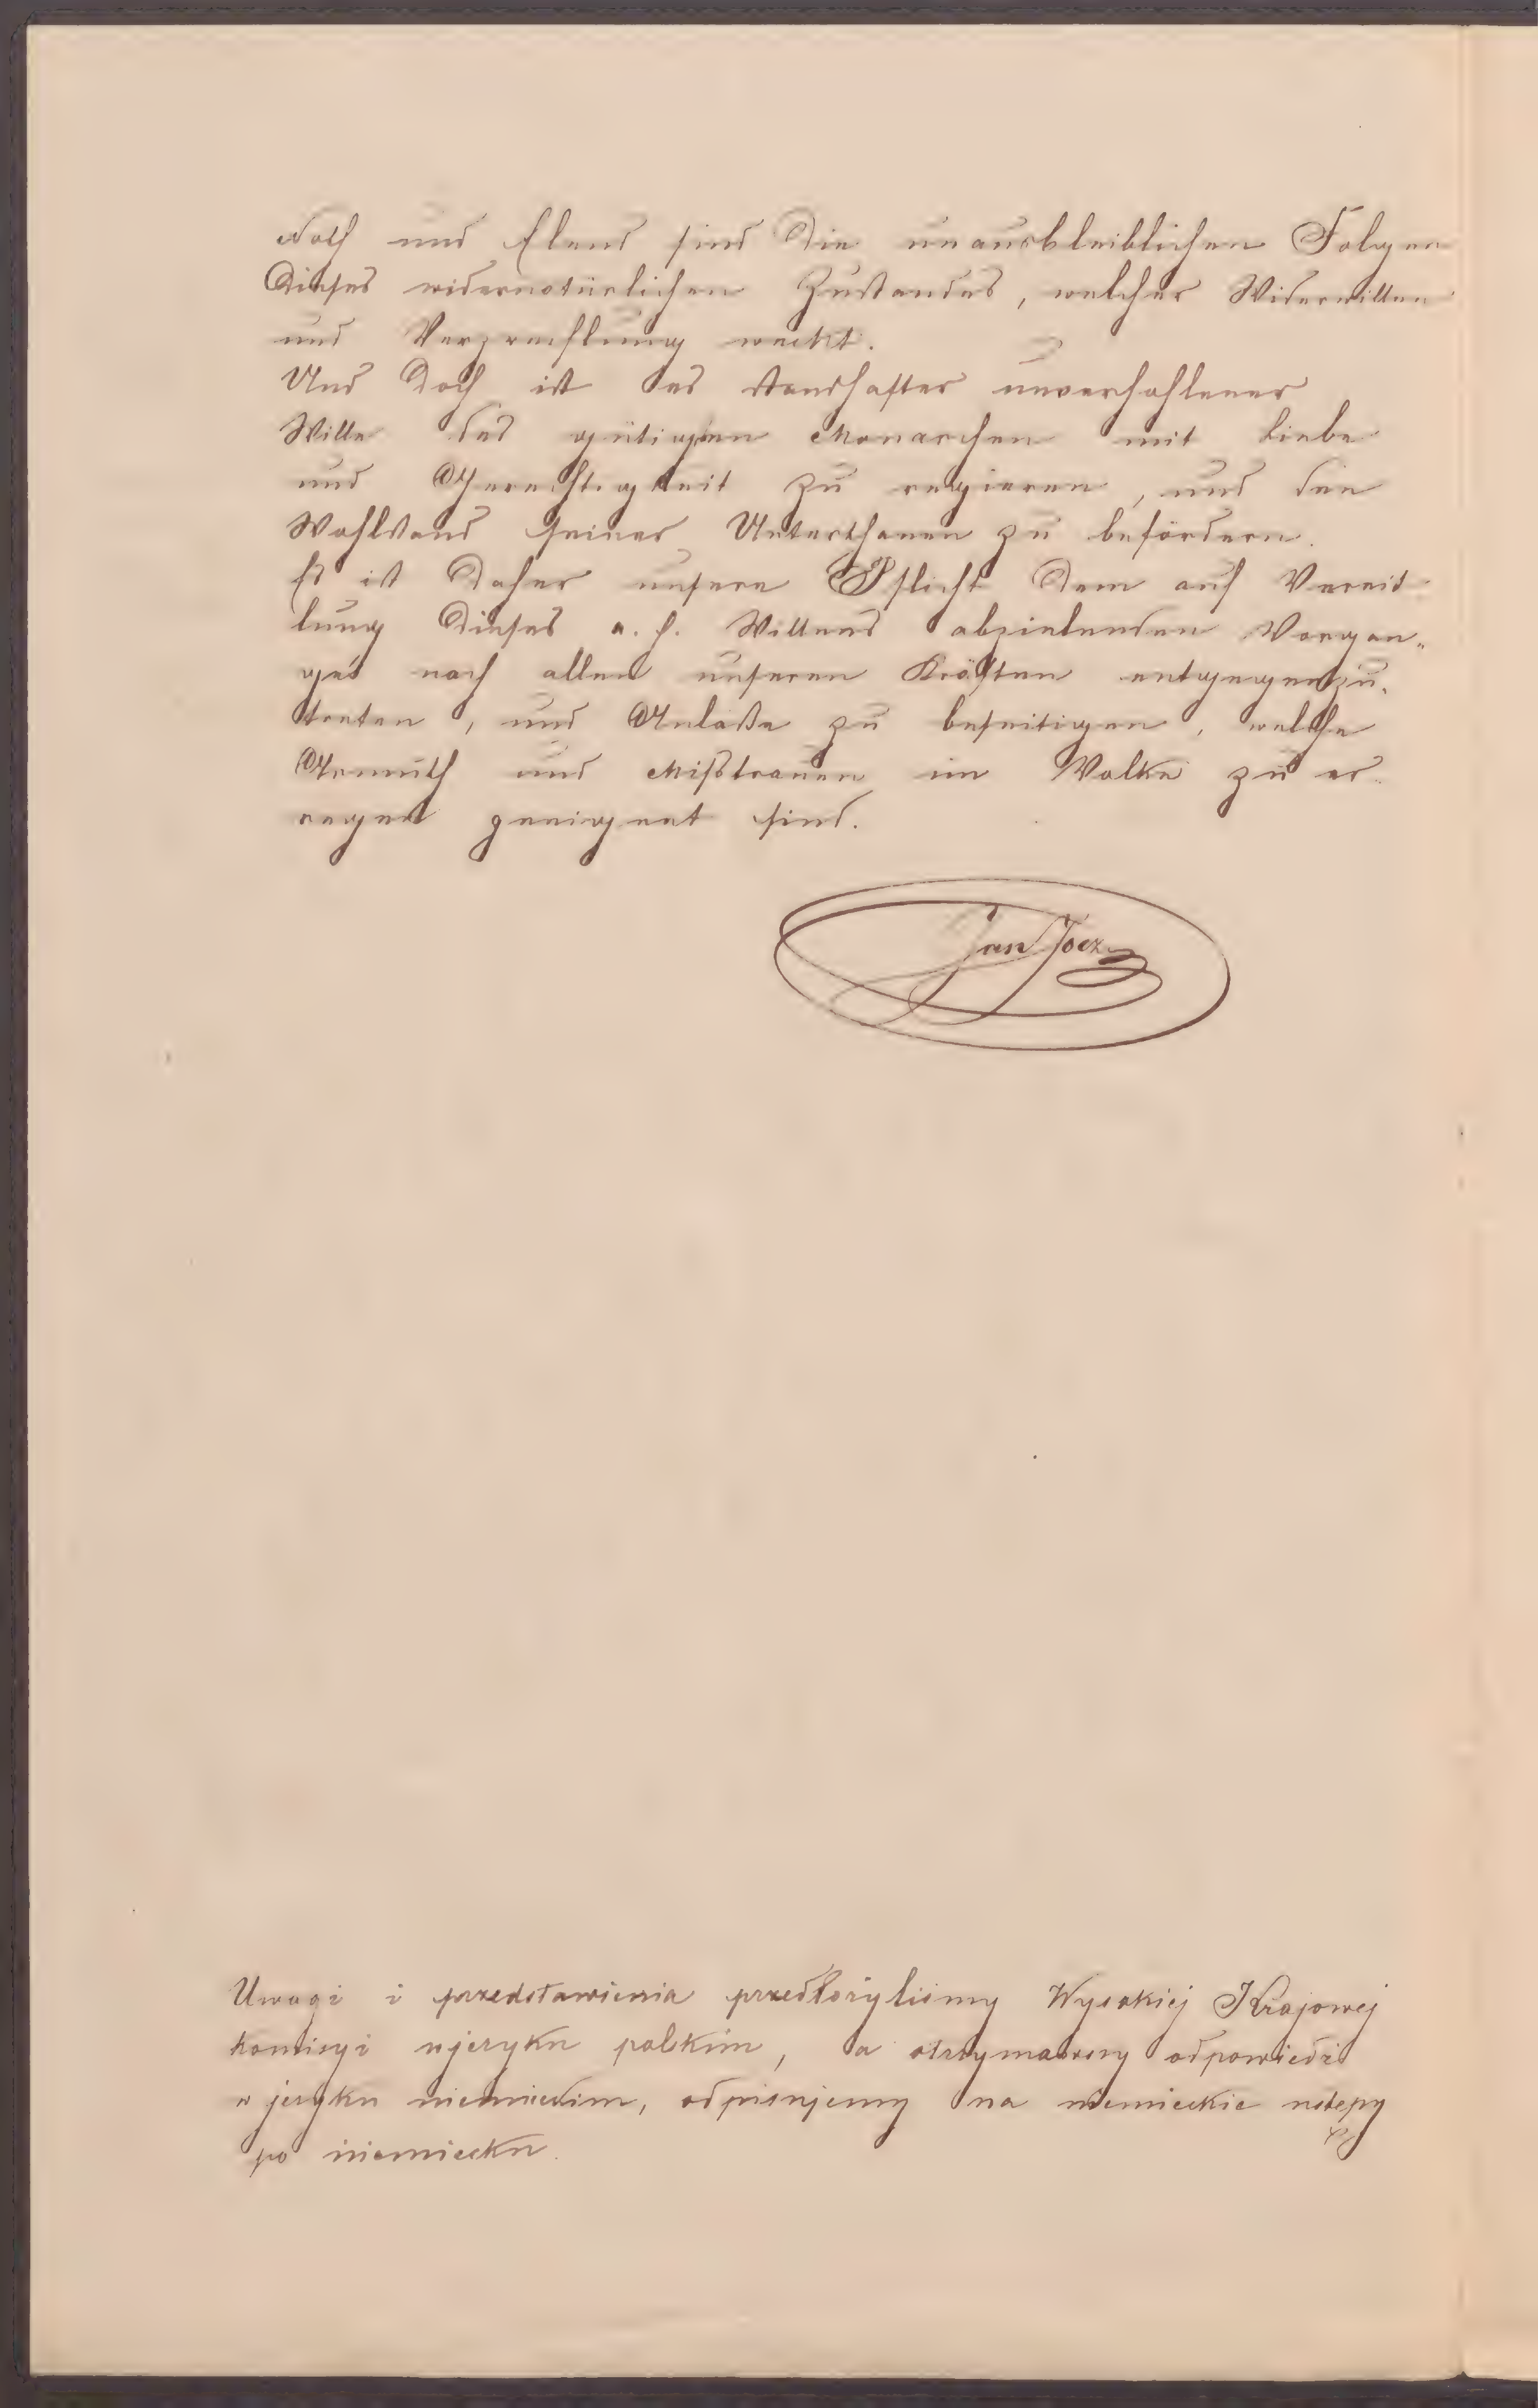 Noth und Elend sind die unausbleiblichen Folgen
dieses widernatürlichen Zustandes, welcher Widerwillen
und Verzweiflung weckt.
Und doch ist es standhafter unverhohlener
Wille des gütigen Monarchen mit Liebe
und Gerechtigkeit zu regieren, und den
Wohlstand seiner Unterthanen zu befördern.
Es ist daher unsere Pflicht dem auf Vereit
lung dieses a. h. Willens abzielenden Vorgan„
ges nach allen unseren Kräften entgegenzu„
treten, und Anläße zu beseitigen, welche
Armuth und Mißtrauen im Volke zu er
regen geeignet sind.
Jan Joez
Uwagi i przedstawienia przedłożyliśmy Wysokiej Krajowej
Komisyi w języku polskim, a otrzymawszy odpowiedź
w języku niemieckim, odpisujemy na niemieckie ustępy
po niemiecku.